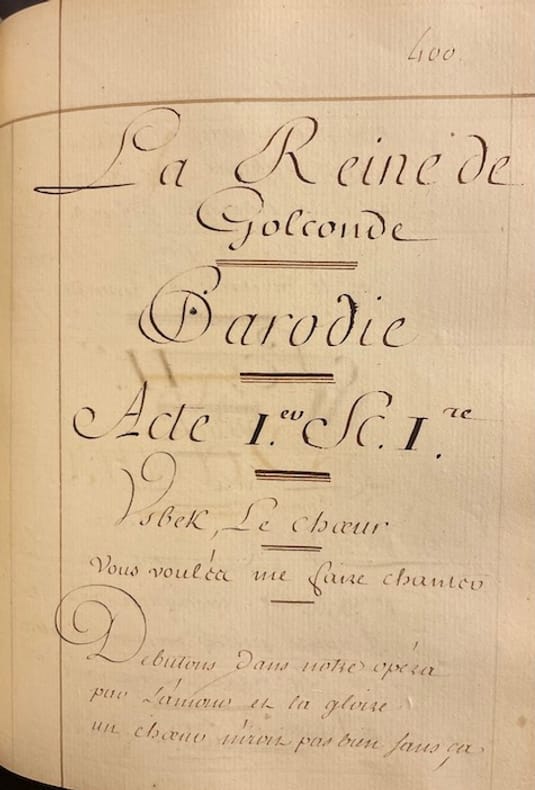 400.
La Reine de
Golconde
Parodie
Acte I.er Sc. I.re
Usbek, Le chœur
Vous voulés me faire chanter
Debutons dans notre opéra
par L'amour et la gloire
un chœur n'iroit pas bien sans ça